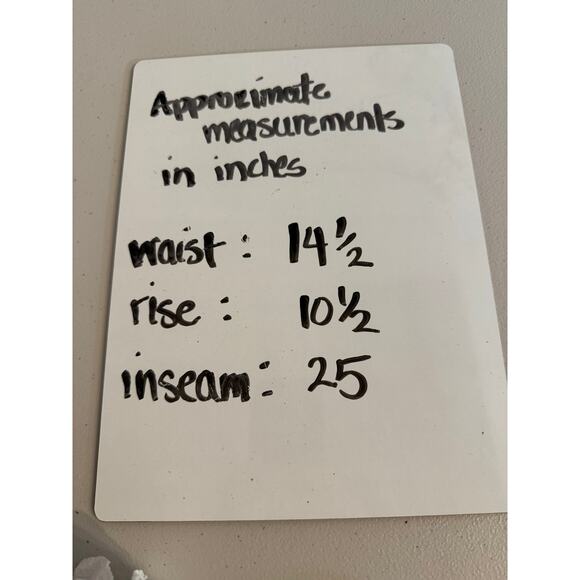 Approximate
measurements
in inches
waist: 14 1/2
rise: 10 1/2
inseam: 25